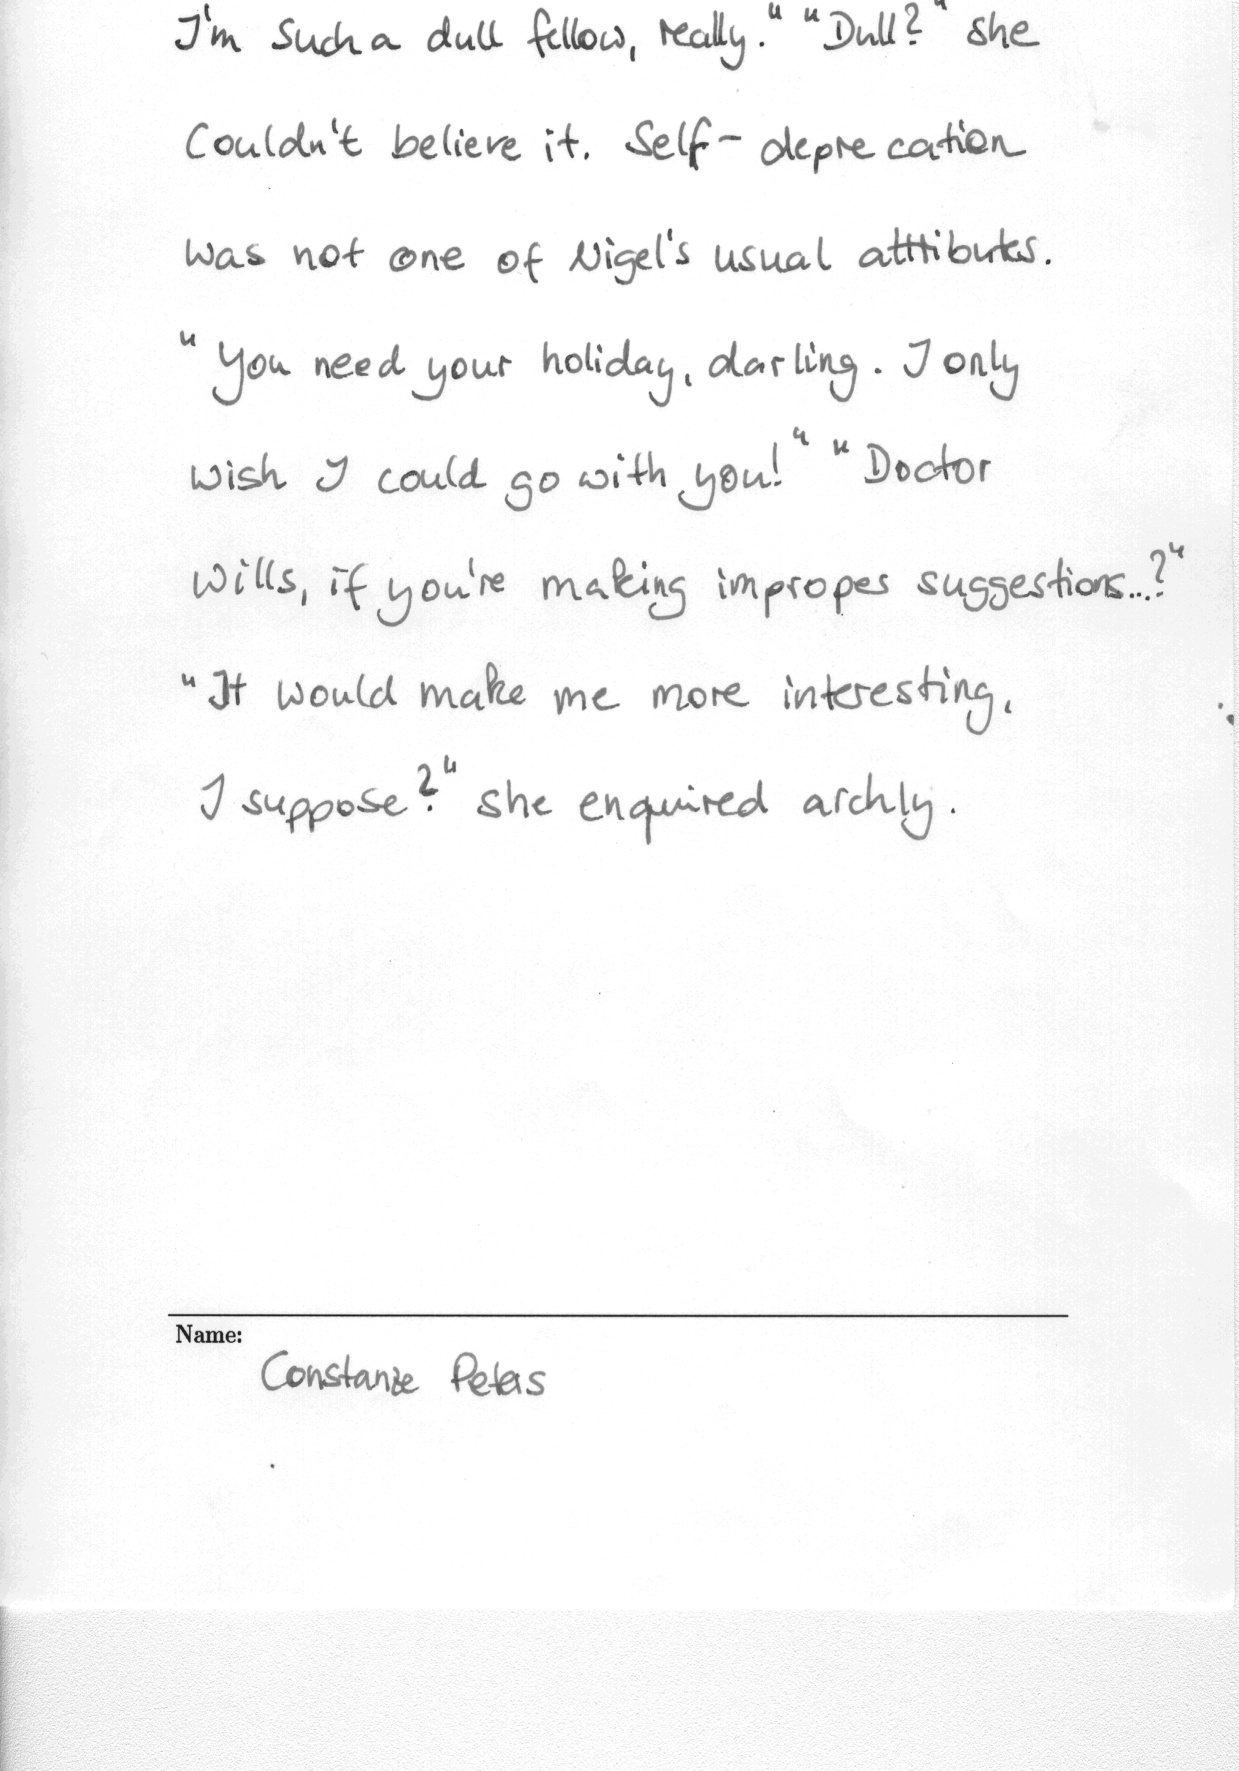 I'm such a dull fellow, really." "Dull?" she
couldn't believe it. Self-deprecation
was not one of Nigel's usual attributes.
"You need your holiday, darling. I only
wish I could go with you!" "Doctor
Wills, if you're making improper suggestions...?"
"It would make me more interesting,
I suppose?" she enquired archly.
Name:
Constanze Peters